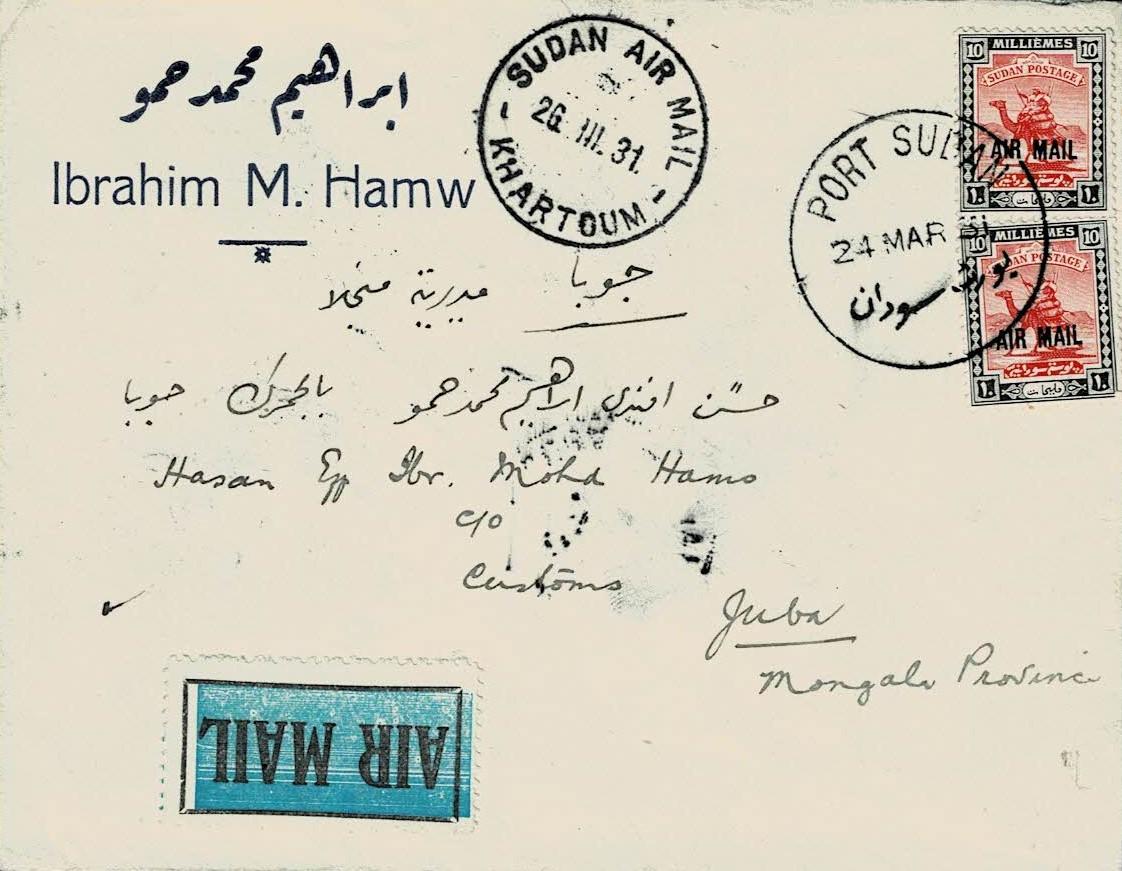 ابراهيم محمد حمو
Ibrahim M. Hamw
SUDAN AIR MAIL
26. III. 31.
- KHARTOUM -
10 MILLIÈMES 10
SUDAN POSTAGE
AIR MAIL
١٠ مليمات ١٠
PORT SUDAN
24 MAR 31
بورت سودان
10 MILLIÈMES 10
SUDAN POSTAGE
AIR MAIL
بوستة سودانية
١٠ مليمات ١٠
جوبا
مديرية منجلا
حسن افندى ابراهيم محمد حمو بالجمرك جوبا
Hasan Eff Ibr. Mohd Hamo
c/o
Customs
Juba
Mongala Province
AIR MAIL